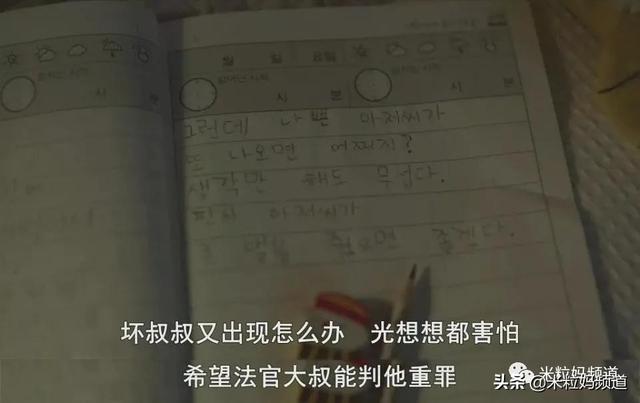 월 일 요일
시 분
시 분
그런데 나쁜 아저씨가
또 나오면 어쩌지?
생각만 해도 무섭다.
판사 아저씨가
벌을 좋겠다.
坏叔叔又出现怎么办 光想想都害怕
希望法官大叔能判他重罪
米粒妈频道
头条 @米粒妈频道